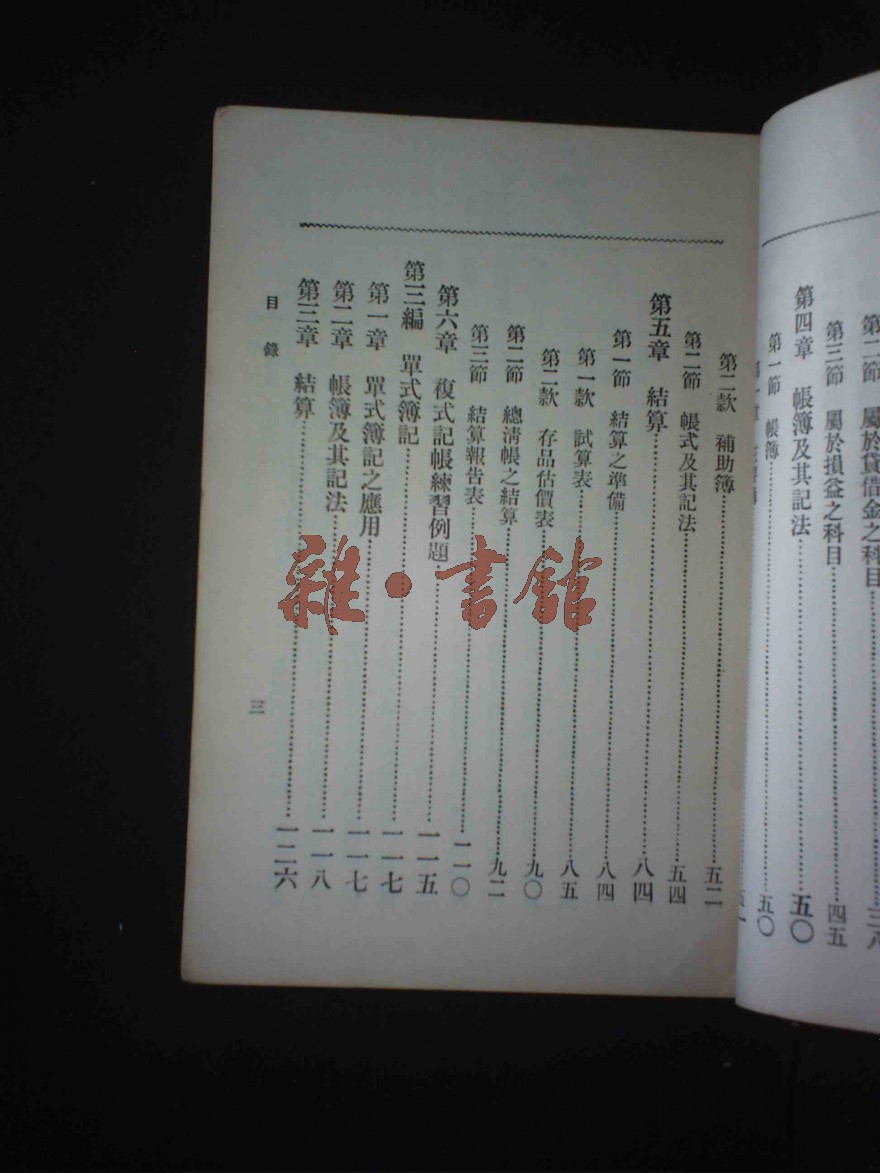 第二節 屬於貸借金之科目……三八
第三節 屬於損益之科目……四五
第四章 帳簿及其記法……五〇
第一節 帳簿……五〇
第二款 補助簿……五二
第二節 帳式及其記法……五四
第五章 結算……八四
第一節 結算之準備……八四
第一款 試算表……八五
第二款 存品估價表……九〇
第二節 總淸帳之結算……九二
第三節 結算報告表……一一〇
第六章 複式記帳練習例題……一一五
第三編 單式簿記……一一七
第一章 單式簿記之應用……一一七
第二章 帳簿及其記法……一一八
第三章 結算……一二六
目錄
三
雜·書館